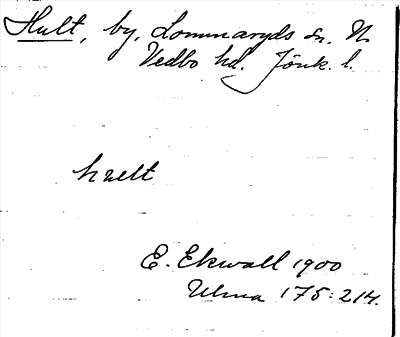 Hult, by, Lommaryds sn. N.
Vedbo hd. Jönk. l.
hult
E. Ekwall 1900
Ulma 175:214.